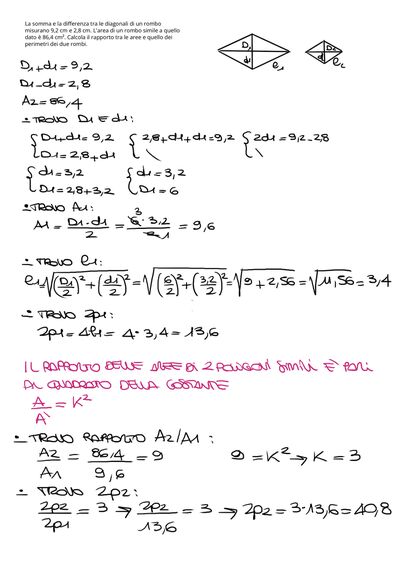 La somma e la differenza tra le diagonali di un rombo
misurano 9,2 cm e 2,8 cm. L'area di un rombo simile a quello
dato è 86,4 cm². Calcola il rapporto tra le aree e quello dei
perimetri dei due rombi.
D1 d1 l1 D2 d2 l2
D1+d1=9,2
D1-d1=2,8
A2=86,4
∸ TROVO D1 E d1:
{D1+d1=9,2 {2,8+d1+d1=9,2 {2d1=9,2-2,8
{D1=2,8+d1 {\\ {\\
{d1=3,2 {d1=3,2
{D1=2,8+3,2 {D1=6
∸ TROVO A1:
A1 = D1·d1/2 = 6 3·3,2/2 1 = 9,6
∸ TROVO l1:
l1√(D1/2)²+(d1/2)² = √(6/2)²+(3,2/2)² = √9+2,56 = √11,56 = 3,4
∸ TROVO 2p1:
2p1 = 4l1 = 4·3,4 = 13,6
IL RAPPORTO DELLE AREE DI 2 POLIGONI SIMILI È PARI
AL QUADRATO DELLA COSTANTE
A/A' = K²
∸ TROVO RAPPORTO A2/A1:
A2/A1 = 86,4/9,6 = 9 9=K²→K=3
∸ TROVO 2p2:
2p2/2p1 = 3 → 2p2/13,6 = 3 → 2p2=3·13,6=40,8